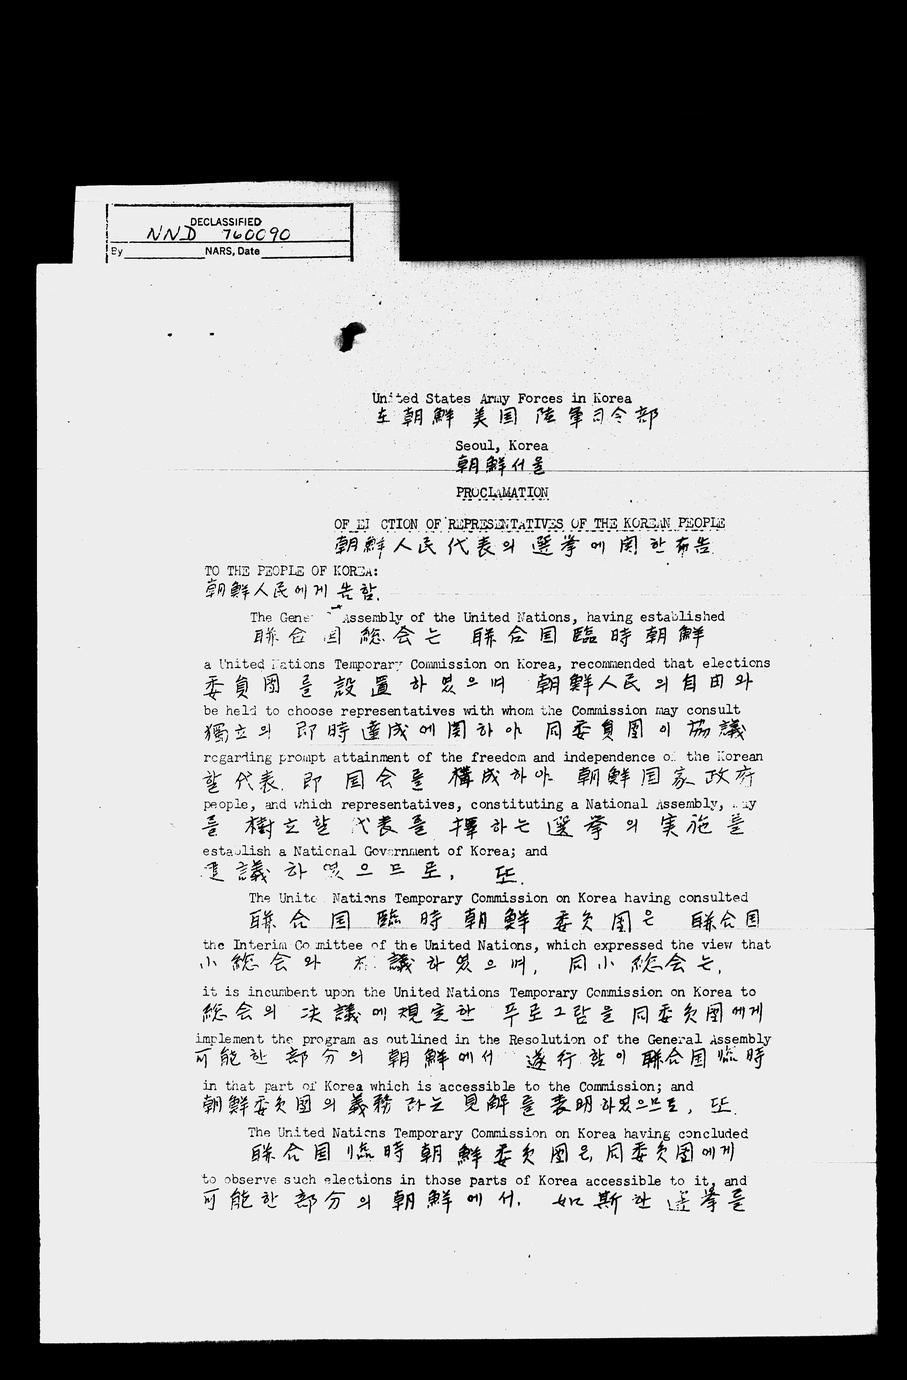 DECLASSIFIED
NND 760090
By NARS, Date
United States Army Forces in Korea
在朝鮮美国陸軍司令部
Seoul, Korea
朝鮮서울
PROCLAMATION
OF CTION OF REPRESENTATIVES OF THE KOREAN PEOPLE
朝鮮人民代表의 選挙에 関한 布告
TO THE PEOPLE OF KOREA:
朝鮮人民에게 告함.
The Assembly of the United Nations, having established
聯合国総会는 聯合国臨時朝鮮
a United Nations Temporary Commission on Korea, recommended that elections
委員団를 設置하였으며 朝鮮人民의 自由와
be held to choose representatives with whom the Commission may consult
獨立의 即時達成에 関하야 同委員団이 協議
regarding prompt attainment of the freedom and independence of the Korean
할 代表, 即 国会를 構成하야 朝鮮国家政府
people, and which representatives, constituting a National Assembly, may
를 樹立할 代表를 擇하는 選挙의 実施를
establish a National Government of Korea; and
議하였으므로, 또.
The United Nations Temporary Commission on Korea having consulted
聯合国臨時朝鮮委員団은 聯合国
the Interim Committee of the United Nations, which expressed the view that
小総会와 議하였으며, 同小総会는,
it is incumbent upon the United Nations Temporary Commission on Korea to
総会의 決議에 規定한 푸로그람을 同委員団에게
implement the program as outlined in the Resolution of the General Assembly
可能한 部分의 朝鮮에서 遂行함이 聯合国臨時
in that part of Korea which is accessible to the Commission; and
朝鮮委員団의 義務라는 見解를 表明하였으므로, 또.
The United Nations Temporary Commission on Korea having concluded
聯合国臨時朝鮮委員団은 同委員団에게
to observe such elections in those parts of Korea accessible to it, and
可能한 部分의 朝鮮에서, 如斯한 選挙를